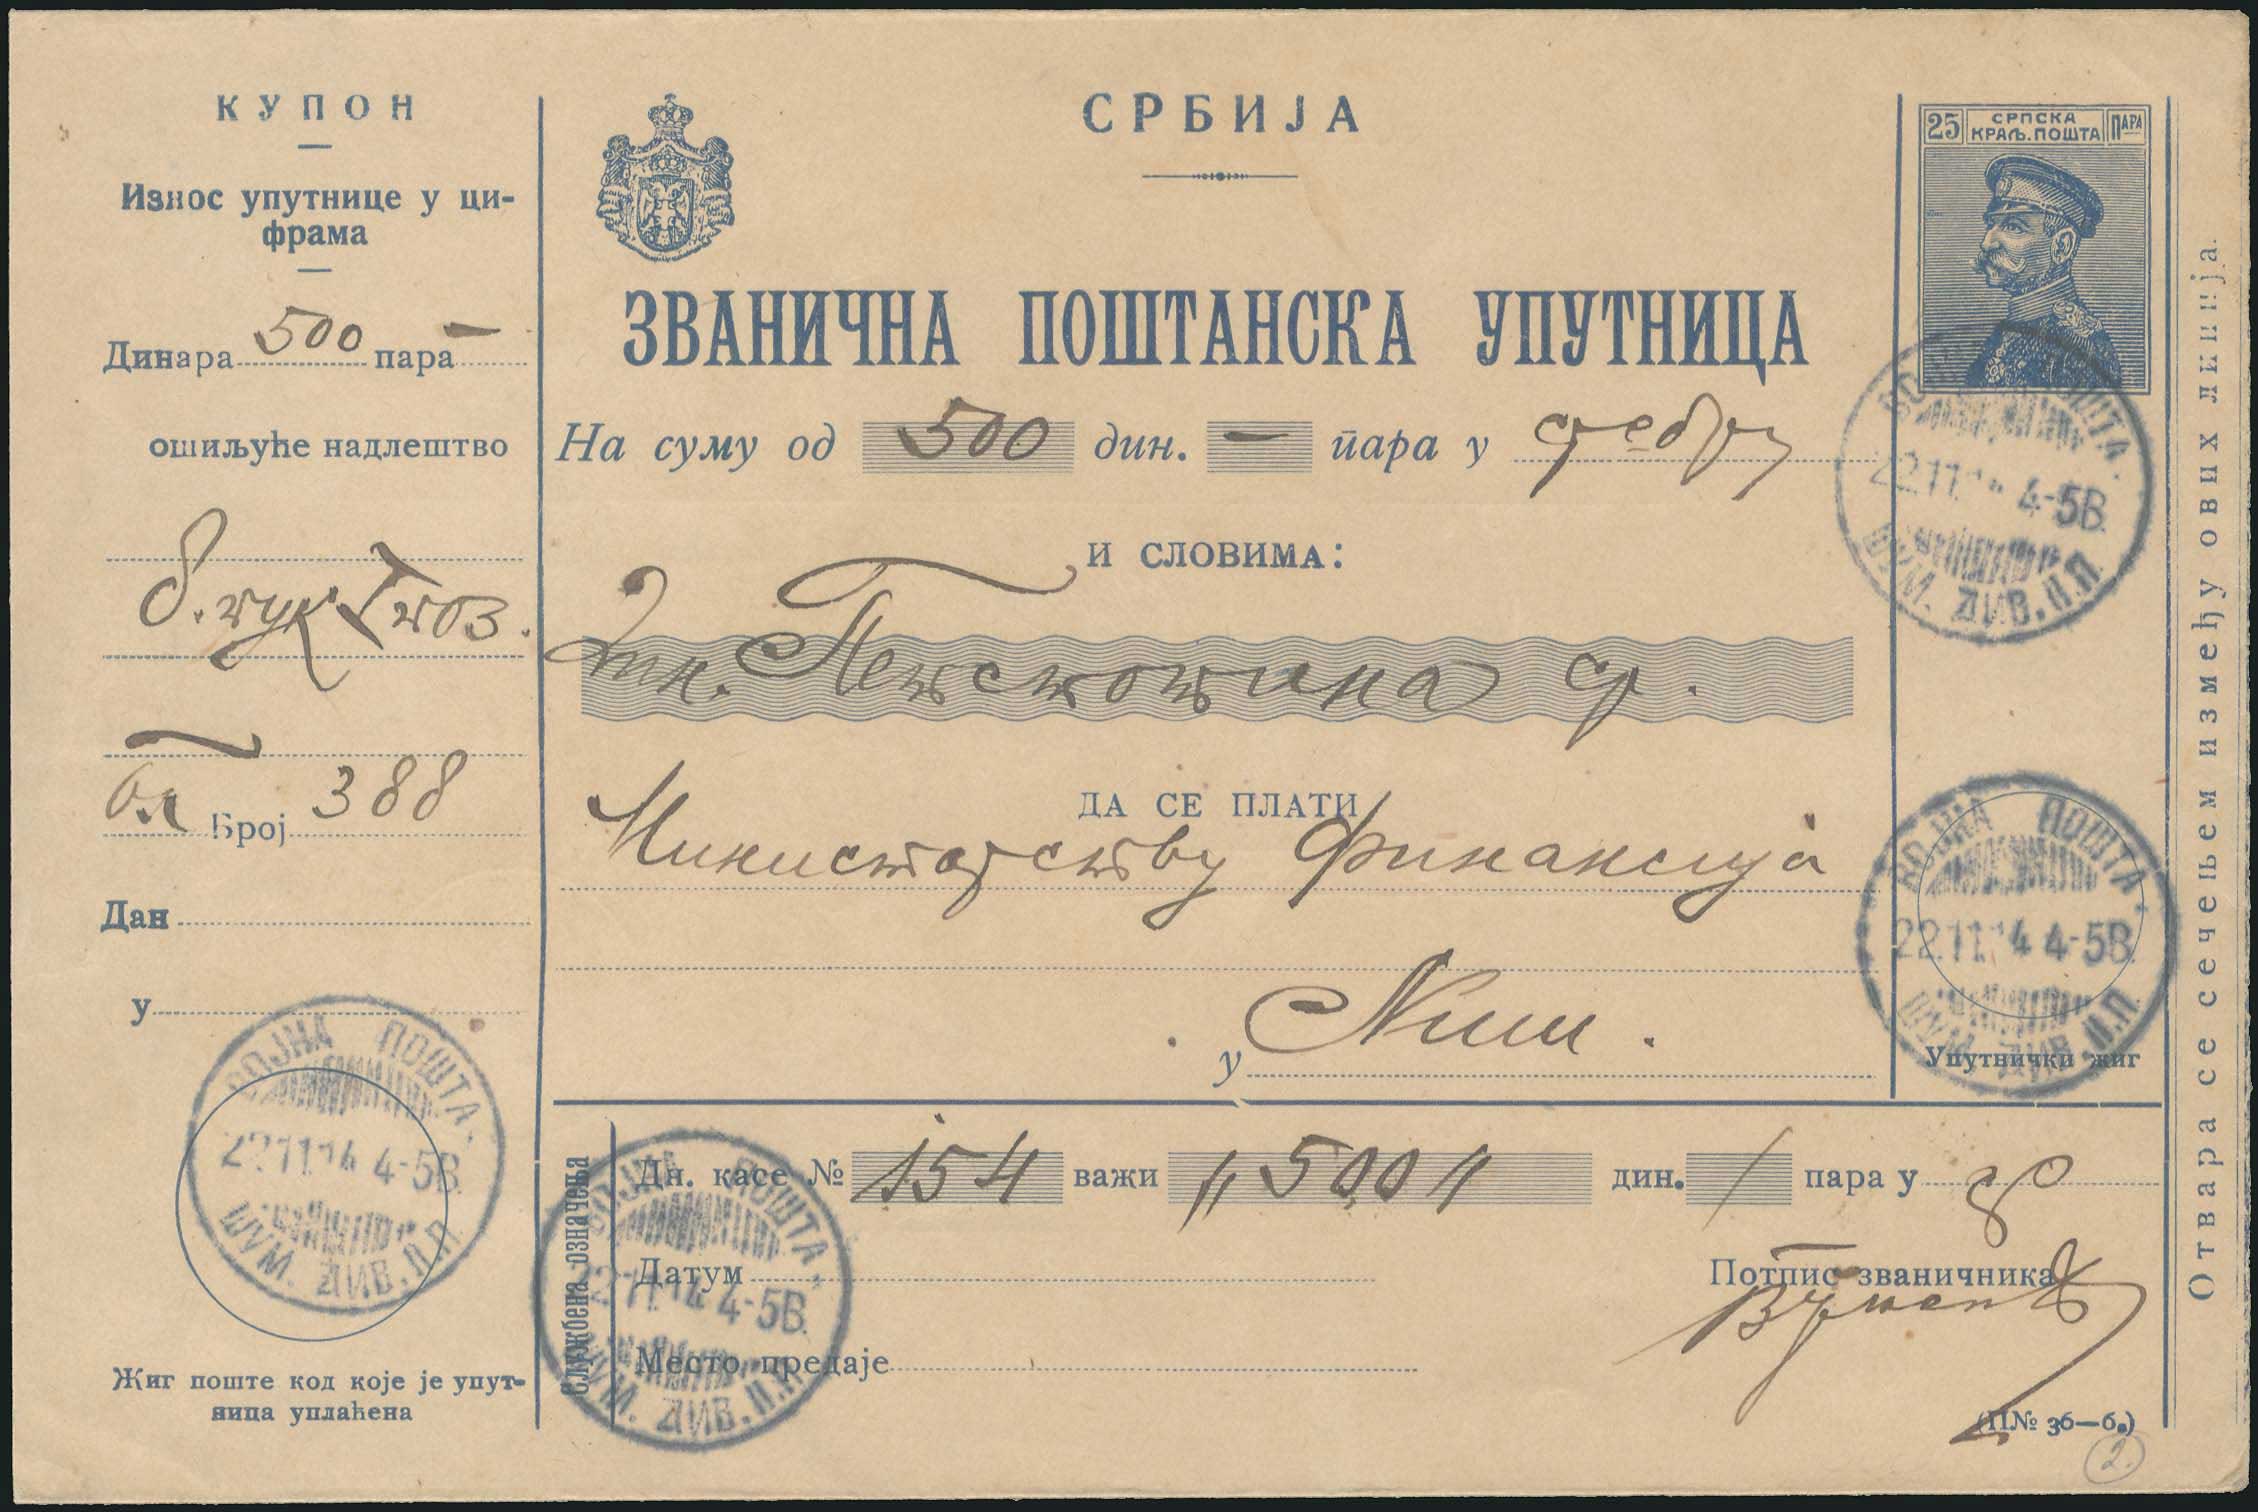 КУПОН
Износ упутнице у ци-
фрама
Динара 500 пара —
ошиљуће надлештво
Број 388
Дан
у
ВОЈНА ПОШТА.
22.11.14 4-5В.
ШУМ. ДИВ. II.П.
Жиг поште код које је упут-
ница уплаћена
СРБИЈА
ЗВАНИЧНА ПОШТАНСКА УПУТНИЦА
На суму од 500 дин. — пара у сребру
И СЛОВИМА:
дин. Петстотина ср.
ДА СЕ ПЛАТИ
Министарству Финансија
у Ниш.
Службена означења
Дн. касе № 154 важи „500„ дин. / пара у
Датум
Место предаје
Потпис званичника
(П№ 36—б.)
2.
ВОЈНА ПОШТА.
22.11.14 4-5В.
ШУМ. ДИВ. II.П.
25 СРПСКА КРАЉ. ПОШТА ПАРА
ВОЈНА ПОШТА.
22.11. 4-5В.
ШУМ. ДИВ. II.П.
ВОЈНА ПОШТА.
22.11.14 4-5В.
ШУМ. ДИВ. II.П.
Упутнички жиг
Отвара се сечењем између ових линија.